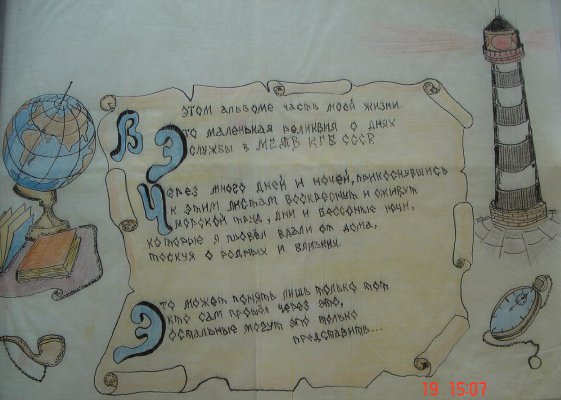 В этом альбоме часть моей жизни.
Это маленькая реликвия о днях
службы в МЧПВ КГБ СССР
Через много дней и ночей, прикоснувшись
к этим листам воскреснут и оживут
морской труд, дни и бессоные ночи,
которые я провёл вдали от дома,
тоскуя о родных и близких.
Это может понять лишь только тот
кто сам прошёл через это,
остальные могут это только
представить...
19 15:07